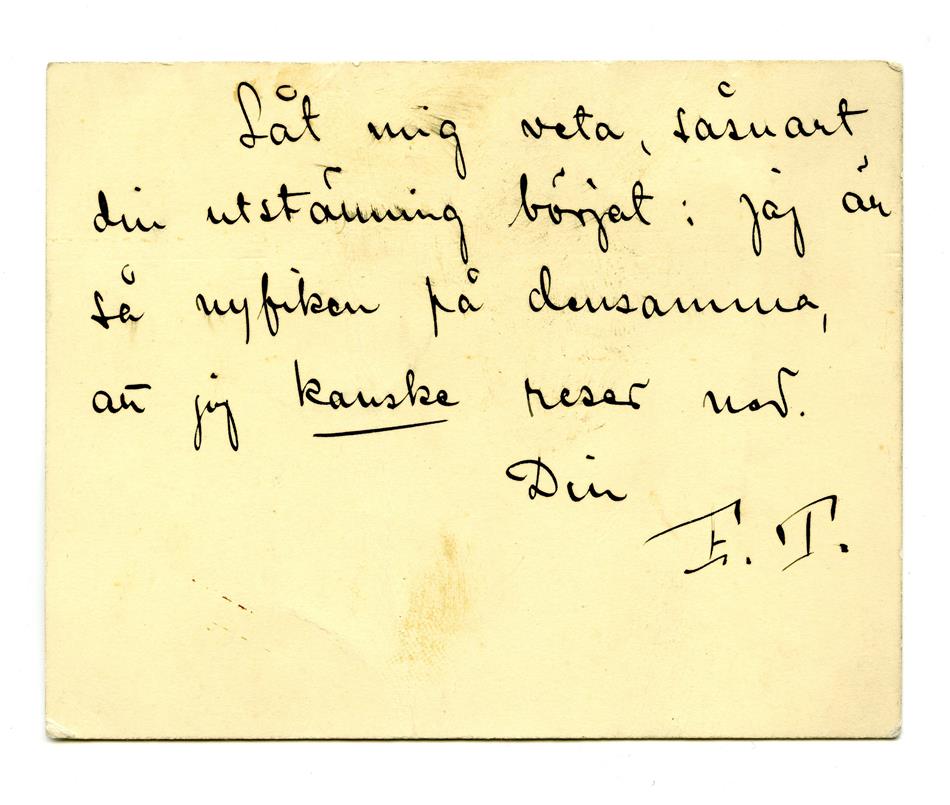 Låt mig veta, såsnart
din utställning börjat: jag är
så nyfiken på densamma,
att jag kanske reser ned.
Din
E. T.